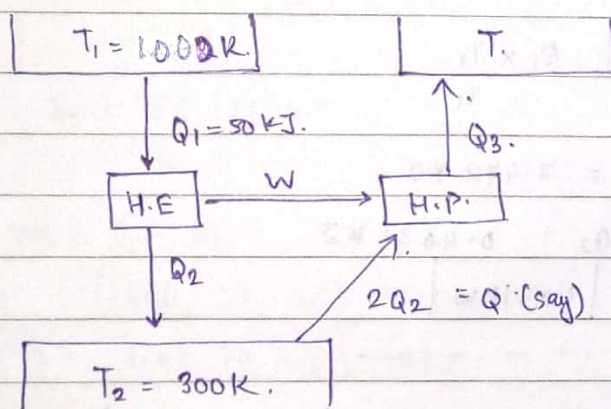 T₁ = 1000K.
T.
Q₁ = 50 KJ.
Q₃.
H.E
W
H.P.
Q₂
2Q₂ = Q (say)
T₂ = 300K.